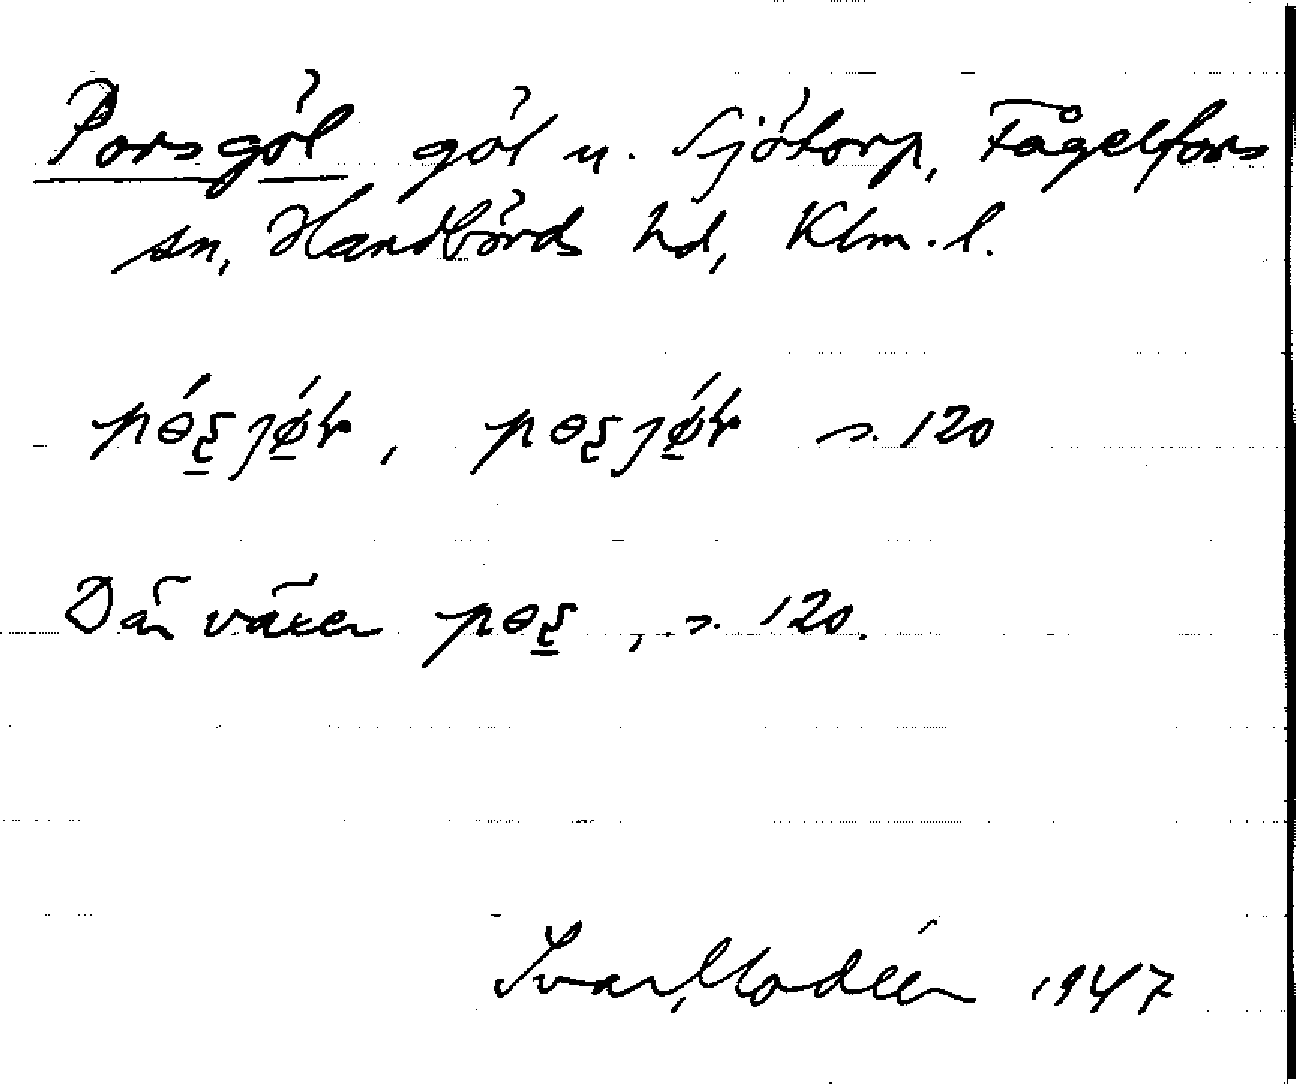 Porsgöl göl u. Sjötorp, Fågelfors
sn, Handbörds hd, Klm. l.
s. 120
Där växer , s. 120.
Ivar Modéer 1947